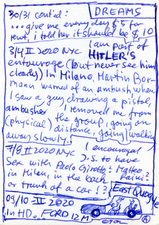 30/31 cont'd: DREAMS
...give me every day $5 for
rent, I told her it should be $8, 10
3/4 II 2020 NYC I am part of
HITLER'S
entourage (but never see him
clearly) In Milano, Martin Bor-
mann warned of an ambush, when
I saw a guy drawing a pistol,
ambusher I removed me from
(physical) the group, going on
away slowly. distance, going/walking
7/8 II 2020 NYC I encouraged
J.S. to have
Sex with
in Milan, in the back
or trunk of a car!? East Quogue
09/10 II 2020
in HD. FORD 12M